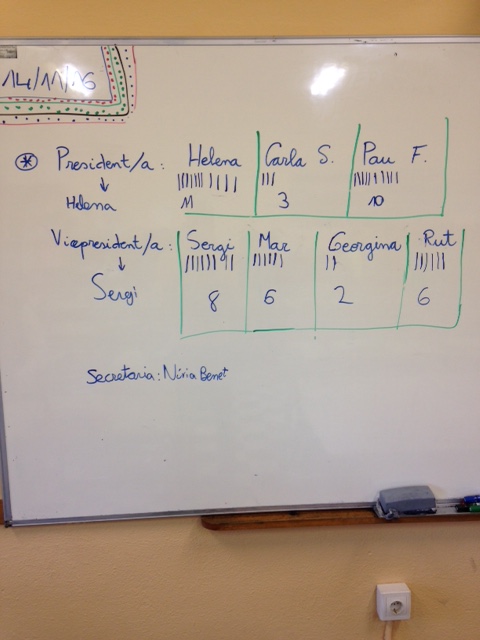 14/11/16
* President/a: Helena Carla S. Pau F.
Helena 11 3 10
Vicepresident/a: Sergi Mar Georgina Rut
Sergi 8 6 2 6
Secretaria: Núria Benet